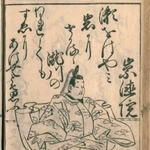 崇徳院
瀬をはやみ
岩に
せかるゝ
瀧川の
われても
すゑに
あはむとそ思ふ